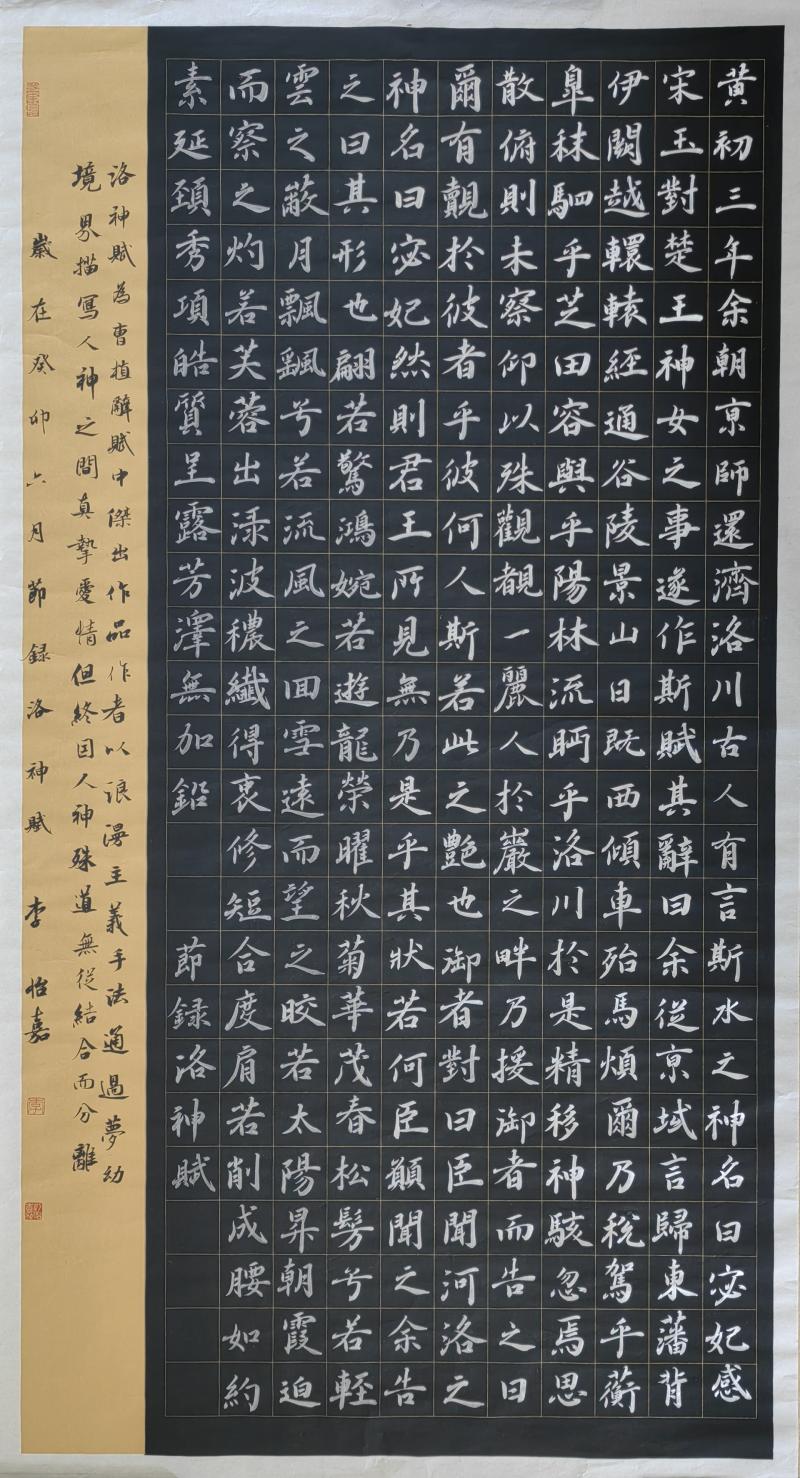 黃初三年余朝京師還濟洛川古人有言斯水之神名曰宓妃感
宋玉對楚王神女之事遂作斯賦其辭曰余從京域言歸東藩背
伊闕越轘轅經通谷陵景山日既西傾車殆馬煩爾乃稅駕乎蘅
皐秣駟乎芝田容與乎陽林流眄乎洛川於是精移神駭忽焉思
散俯則未察仰以殊觀覩一麗人於巖之畔乃援御者而告之曰
爾有覿於彼者乎彼何人斯若此之艷也御者對曰臣聞河洛之
神名曰宓妃然則君王所見無乃是乎其狀若何臣願聞之余告
之曰其形也翩若驚鴻婉若遊龍榮曜秋菊華茂春松髣兮若輕
雲之蔽月飄颻兮若流風之回雪遠而望之皎若太陽昇朝霞迫
而察之灼若芙蓉出淥波穠纖得衷修短合度肩若削成腰如約
素延頸秀項皓質呈露芳澤無加鉛 節録洛神賦
洛神賦為曹植辭賦中傑出作品作者以浪漫主義手法通過夢幻
境界描寫人神之間真摯愛情但終因人神殊道無從結合而分離
歲在癸卯六月節録洛神賦 李怡嘉